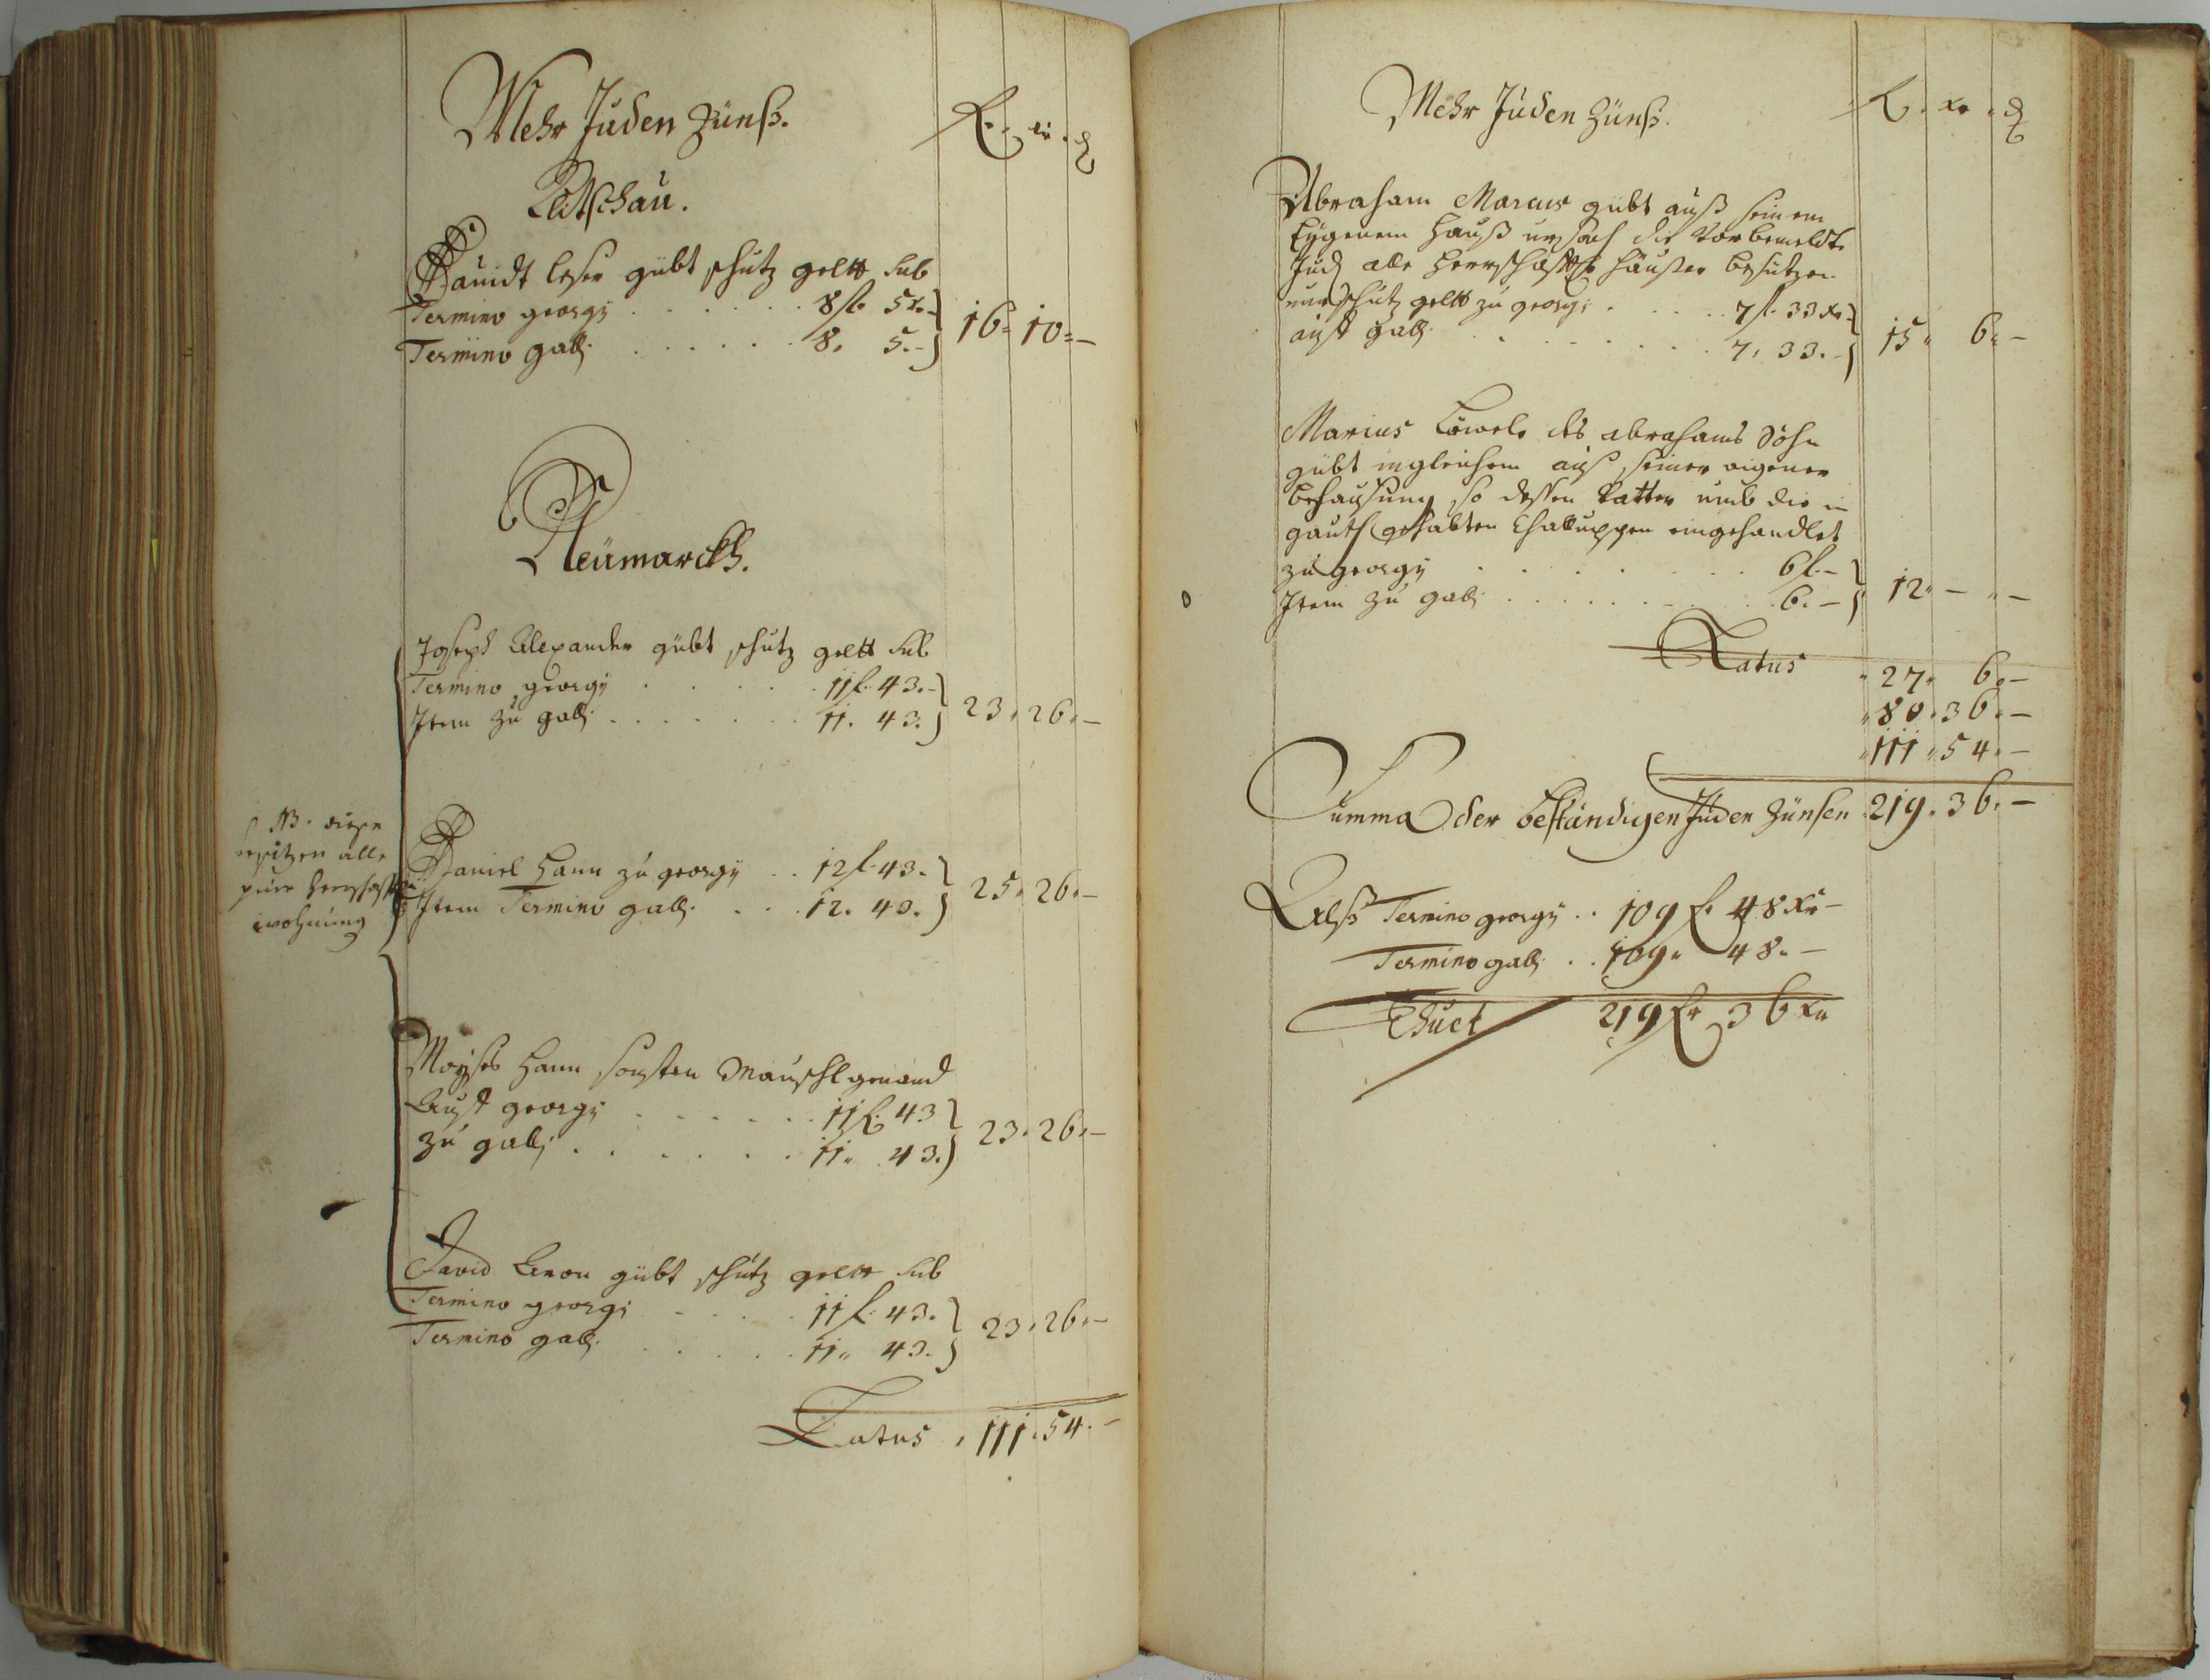 Mehr Juden Zünß.
f. xr. d
Litschau.
Dauidt leser gübt schutz geltt sub
Termino georgy . . . . . . 8 f. 5 x. -
Termino galli . . . . . . 8. 5. -
16. 10. -
Neümarckh.
Joseph Alexander gübt schutz geltt sub
Termino georgy . . . . . 11 f. 43. -
Item zu galli . . . . . . 11. 43.
23. 26. -
NB. diese
besitzen alle
pure herrschafft
wohnung
Daniel Hann zu georgy . . 12 f. 43.
Item Termino galli . . . 12. 43.
25. 26. -
Moyses Hann sonsten Mauschl genand
Auff georgy . . . . . 11 f. 43
zu galli . . . . . . 11. 43.
23. 26. -
David Aron gübt schutz geltt sub
Termino georgi . . . . 11 f. 43.
Termino galli . . . . . 11. 43.
23. 26. -
Latus . 111. 54. -
Mehr Juden Zünß.
f. xr. d
Abraham Marcus gübt auß seinem
Eygenem Hauß ursach die Vorbemeldte
Jud alle herrschafft häußer besützen
nur schutz geltt zu georgi . . . . 7 f. 33 xr. -
auff galli . . . . . . . . 7. 33. -
15. 6. -
Marius Löwels des abrahams Sohn
gübt ingleichem auß seiner eigener
behausung so dessen Vatter umb die in
gehabten Challuppen eingehandlet
zu georgy . . . . . . . . 6 f. -
Item zu galli . . . . . . . . 6. -
12. - . -
Latus . 27. 6. -
. 80. 36. -
. 111. 54. -
Summa der beständigen Juden Zünsen . 219. 36. -
Alß Termino georgy . . 109 f. 48 xr -
Termino galli . . 109. 48. -
Thuet 219 f. 36 xr